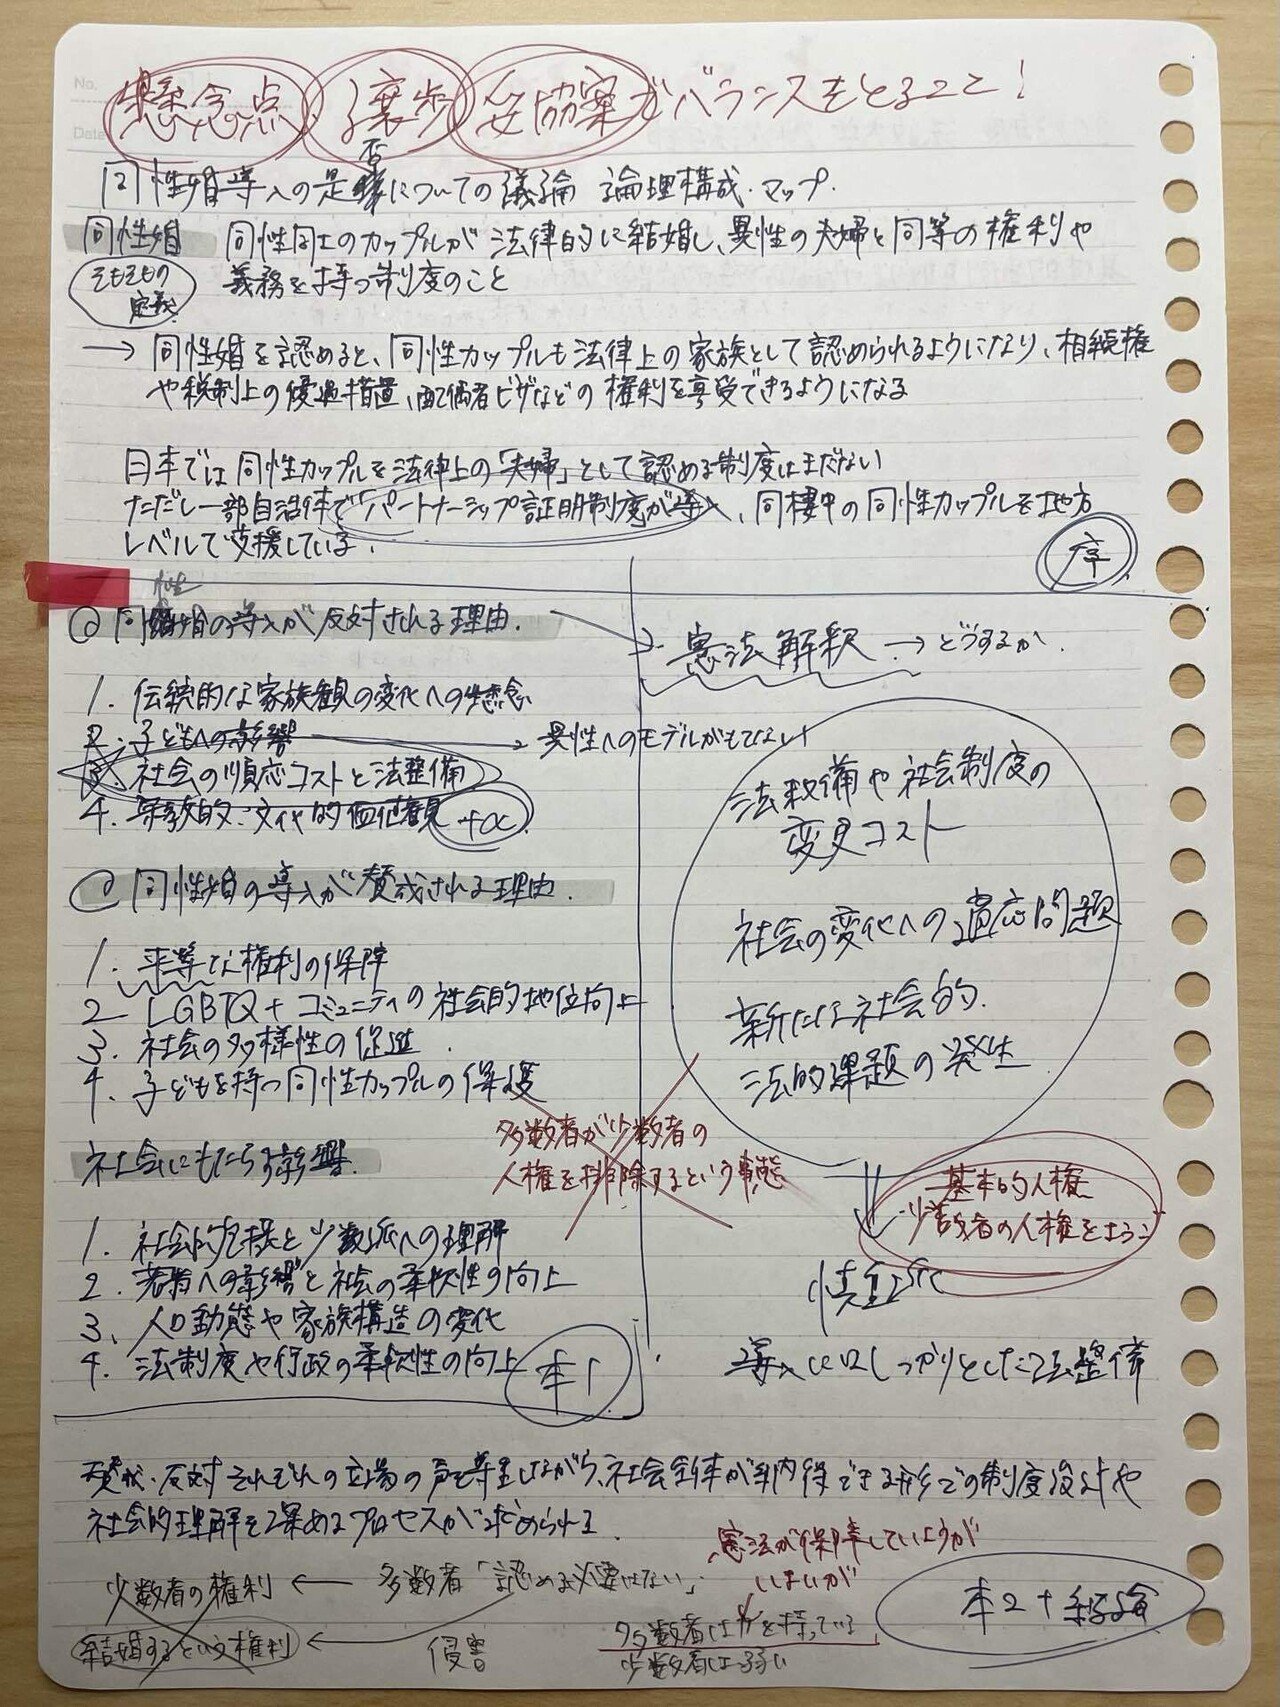 懸念点、譲歩、妥協案がバランスをとること!
No.
Date
同性婚導入の是否についての議論 論理構成・マップ.
同性婚 同性同士のカップルが法律的に結婚し、異性の夫婦と同等の権利や
そもそもの
定義
義務を持つ制度のこと
→ 同性婚を認めると、同性カップルも法律上の家族として認められるようになり、相続権
や税制上の優遇措置、配偶者ビザなどの権利を享受できるようになる
日本では同性カップルを法律上の「夫婦」として認める制度はまだない
ただし一部自治体で「パートナーシップ証明制度が導入、同棲中の同性カップルを地方
レベルで支援している.
序
性
同婚の導入が反対される理由.
→ 憲法解釈 → どうするか.
1. 伝統的な家族観の変化への懸念
2. 子どもへの影響 → 異性へのモデルがもてない
3. 社会の順応コストと法整備
4. 宗教的・文化的価値観 +α
法整備や社会制度の
変更コスト
社会の変化への適応問題
新たな社会的.
法的課題の発生
同性婚の導入が賛成される理由.
1. 平等な権利の保障
2 LGBTQ+コミュニティの社会的地位向上
3. 社会の多様性の促進.
4. 子どもを持つ同性カップルの保護
多数者が少数者の
人権を排除するという事態
基本的人権
少数者の人権を
社会にもたらす影響.
慎重
導入にはしっかりとした法整備
1. 社会的包摂と少数派への理解
2. 若者への影響と社会の柔軟性の向上
3. 人口動態や家族構造の変化
4. 法制度や行政の柔軟性の向上
本1
賛成・反対それぞれの立場の声を尊重しながら、社会全体が納得できる形での制度設計や
社会的理解を深めるプロセスが求められる.
憲法が保障していようが
しまいが
少数者の権利 ← 多数者「認める必要はない」.
結婚するという権利
侵害
多数者は力を持っている
少数者は弱い
本2+結論